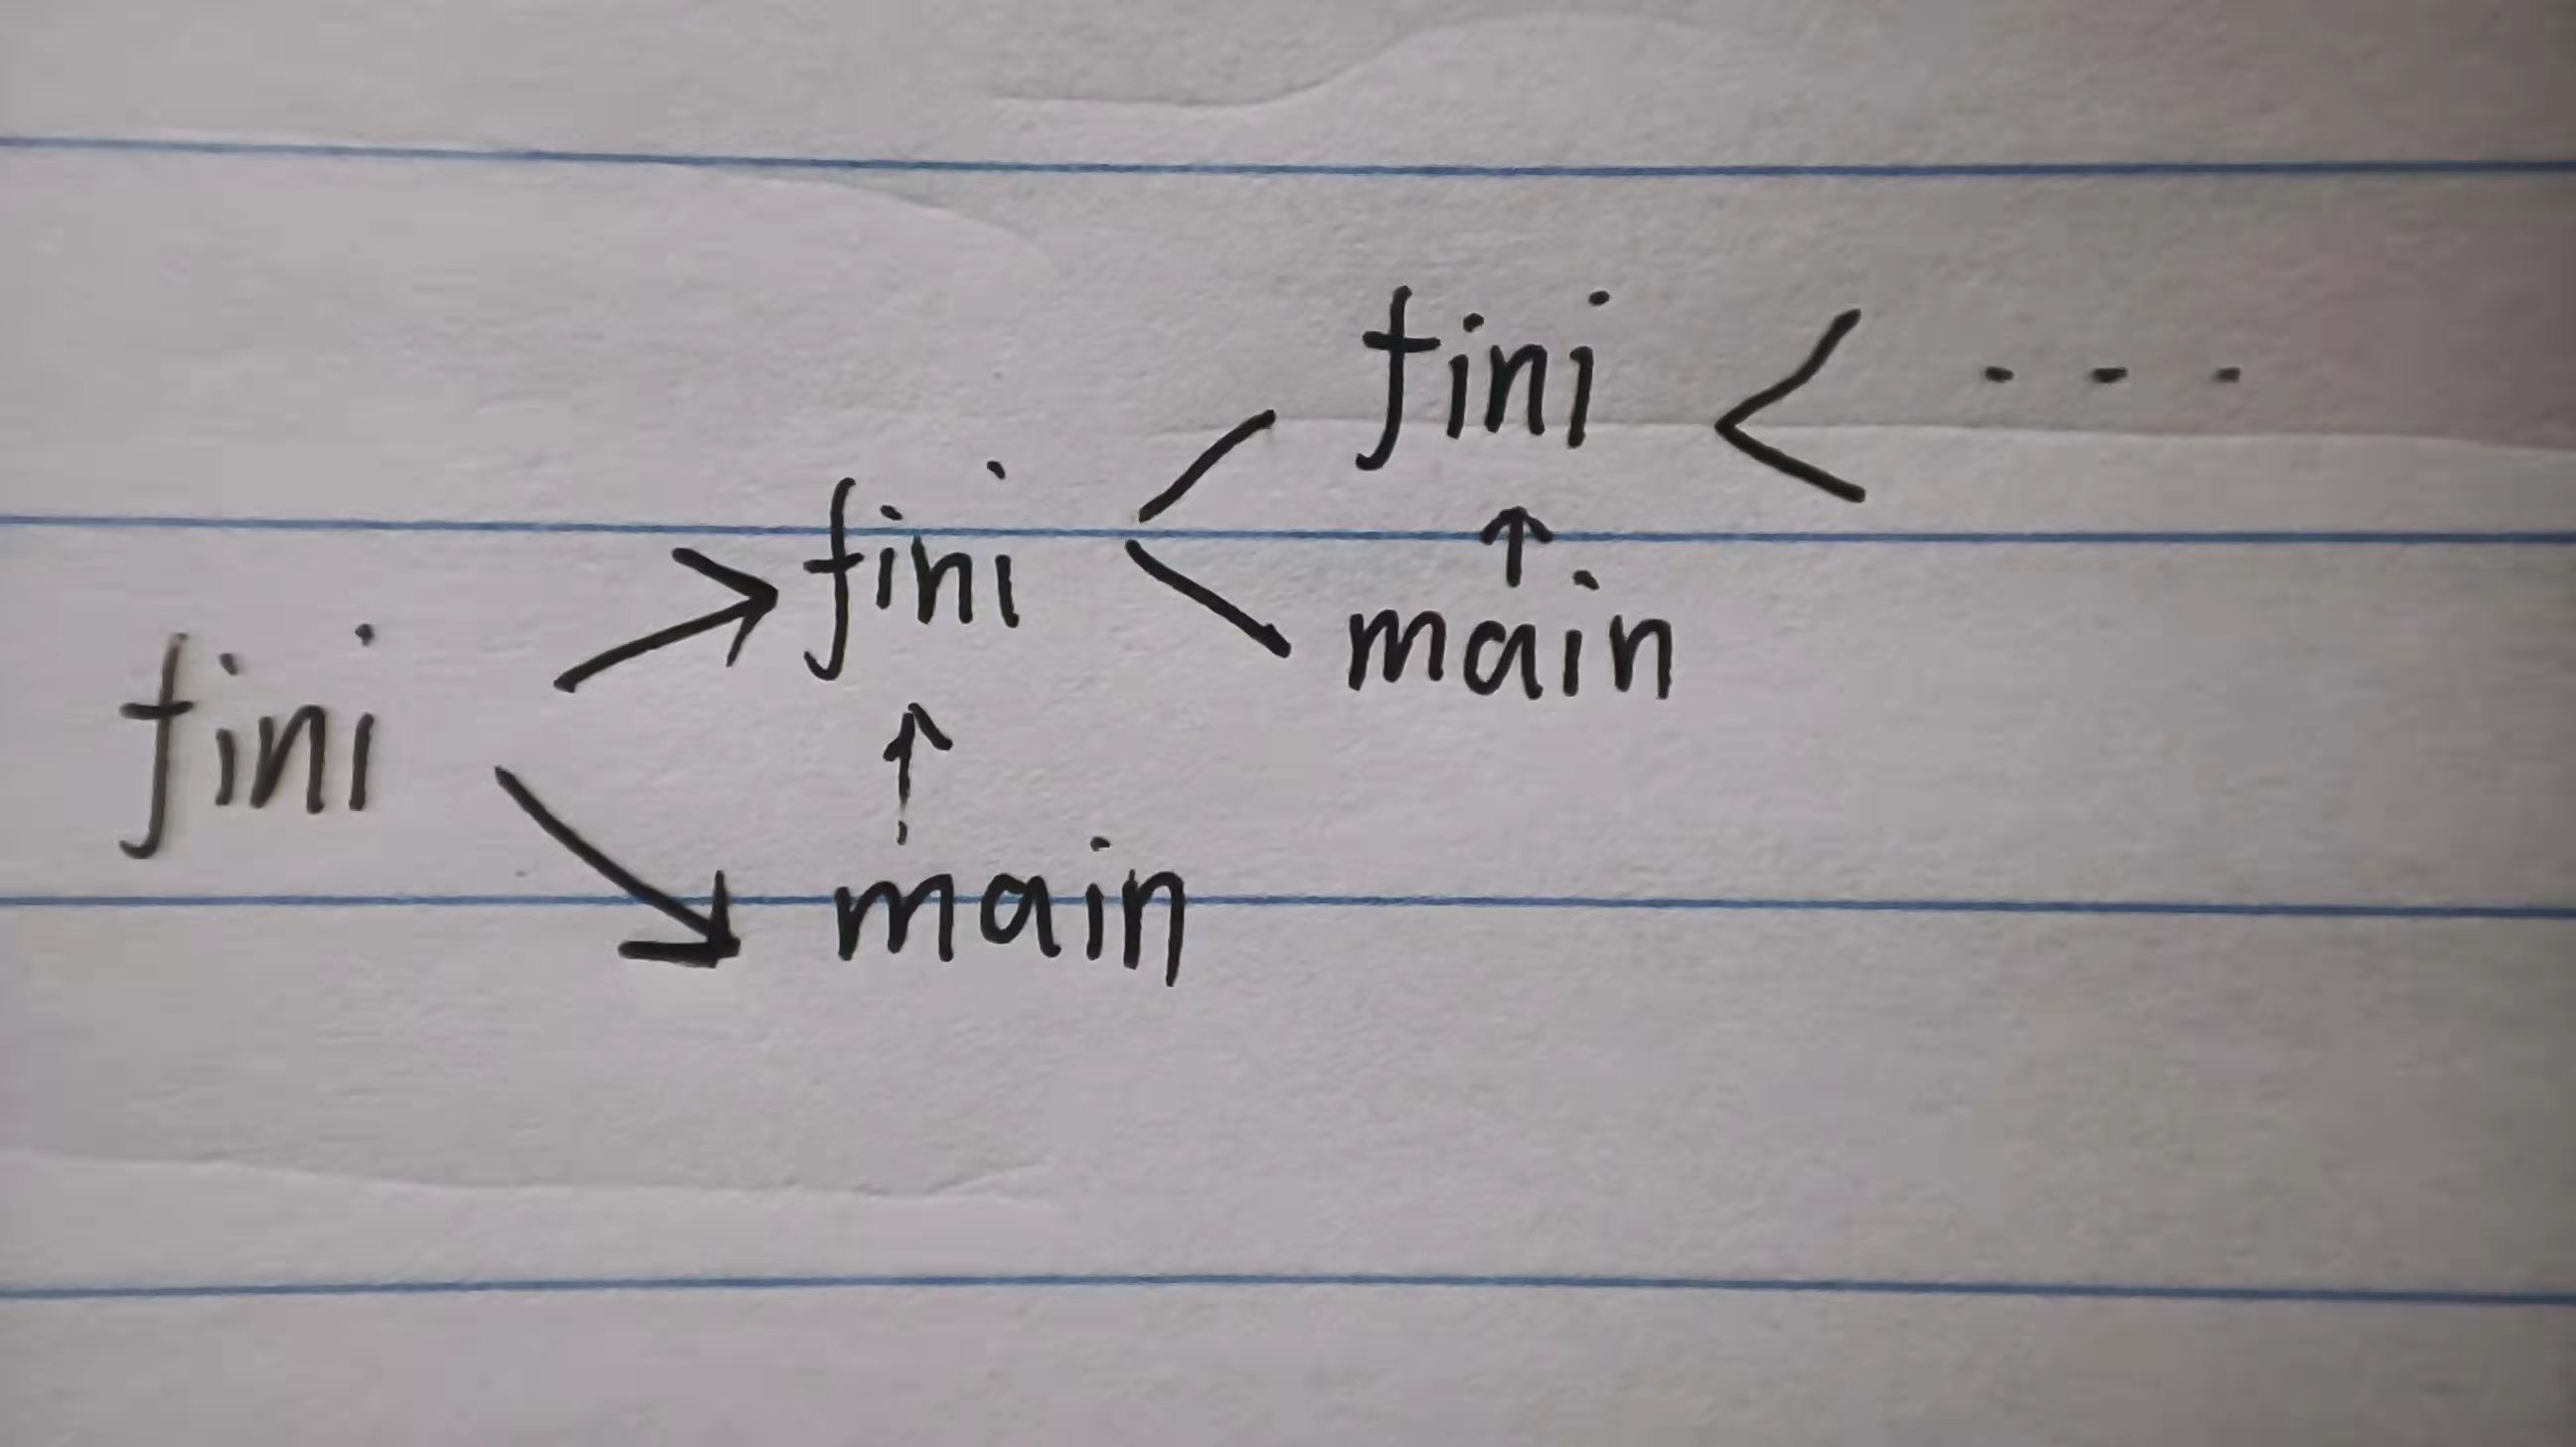 fini
fini
main
fini
main
...